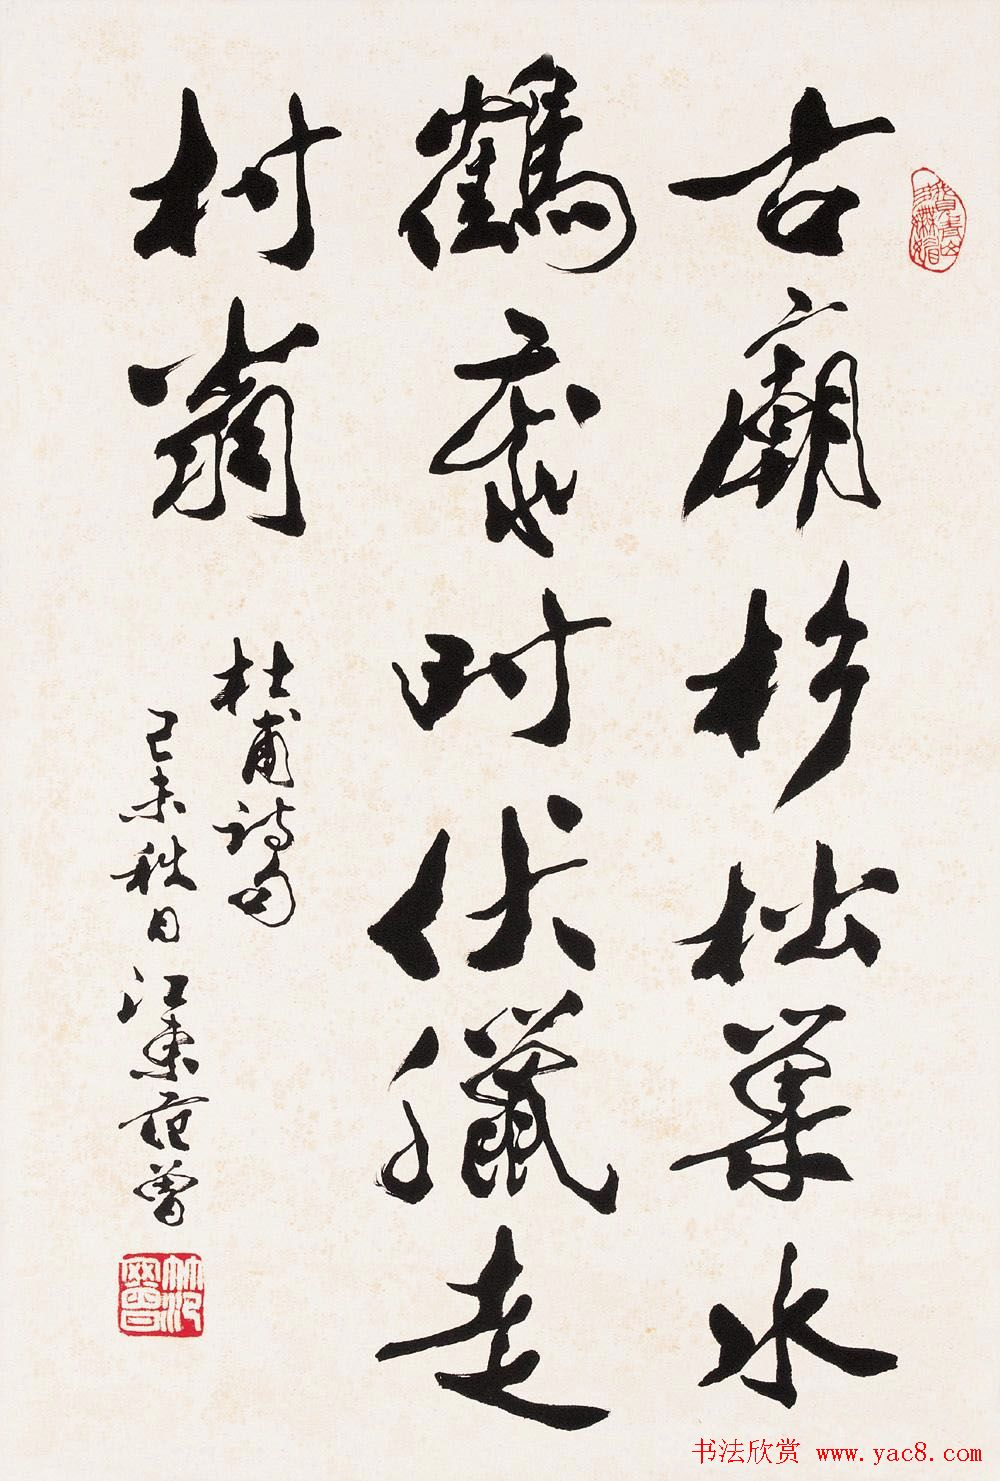 古廟杉松巢水
鶴歲时伏臘走
村翁
杜甫诗句
己未秋日江東范曾
书法欣赏 www.yac8.com